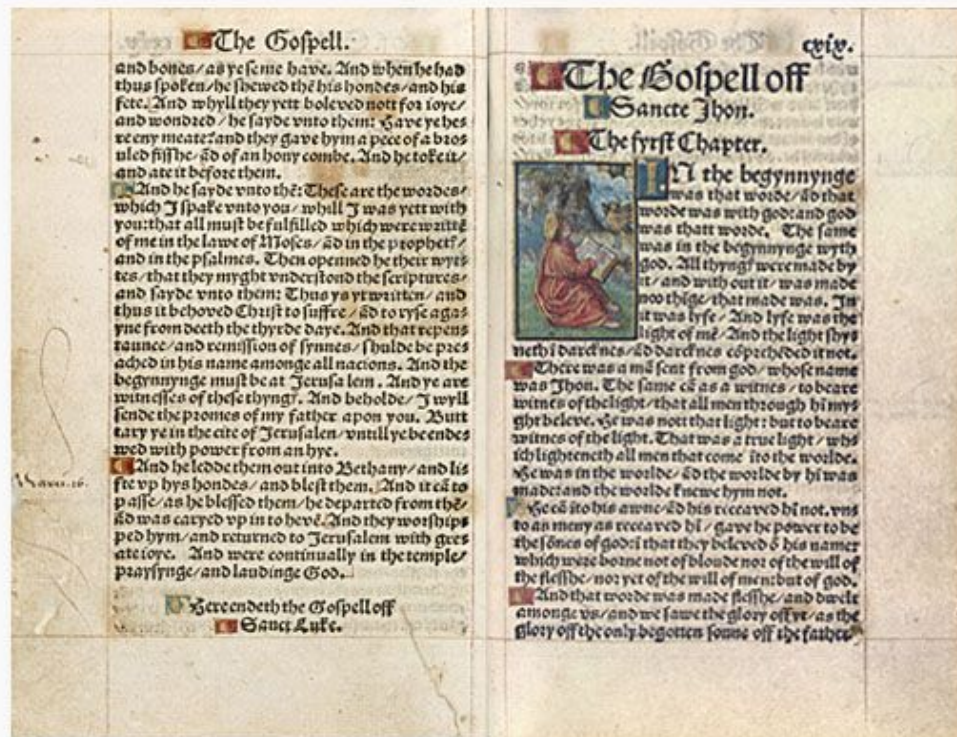 The Gospell.
and bones/as ye seme have. And when he had
thus spoken/he shewed thē his hondes/and his
fete. And whyll they yett beleved nott for ioye/
and wondred/he sayde vnto them: Have ye hes
re eny meate? and they gave hym a pece of a bros
uled fisshe/ād of an hony combe. And he toke it/
and ate it before them.
And he sayde vnto thē: These are the wordes/
which I spake vnto you/whill I was yett with
you: that all must be fulfilled which were writtē
of me in the lawe of Moses/ād in the prophetꝭ/
and in the psalmes. Then openned he their wyt
tes/that they myght vnderstond the scriptures/
and sayde vnto them: Thus ys yt written/and
thus it behoved Christ to suffre/ād to ryse aga
yne from deeth the thyrde daye. And that repens
taunce/and remission of synnes/shulde be pres
ached in his name amonge all nacions. And the
begynnynge must be at Jerusa lem. And ye are
witnesses of these thyngꝭ. And beholde/I wyll
sende the promes of my father apon you. Butt
tary ye in the cite of Jerusalen/vntill ye be endes
wed with power from an hye.
And he ledde them out into Bethany/and lis
fte vp hys hondes/and blest them. And it cā to
passe/as he blessed them/he departed from thē/
ād was caryed vp in to hevē. And they worships
ped hym/and returned to Jerusalem with gres
ate ioye. And were continually in the temple/
praysynge/and laudinge God.
Here endeth the Gospell off
Sanct Luke.
cxix.
The Gospell off
Sancte Jhon.
The fyrst Chapter.
IN the begynnynge
was that worde/ād that
worde was with god: and god
was thatt worde. The same
was in the begynnynge wyth
god. All thyngꝭ were made by
it/and with out it/was made
noo thīge/that made was. In
it was lyfe/And lyfe was the
light of mē/And the light shys
neth ī darcknes/ād darcknes cōprehēded it not.
There was a mā sent from god/whose name
was Jhon. The same cā as a witnes/to beare
witnes of the light/that all men through hī mys
ght beleve. He was nott that light: but to beare
witnes of the light. That was a true light/whs
ich lighteneth all men that come īto the worlde.
He was in the worlde/ād the worlde by hī was
made: and the worlde knewe hym not.
He cā īto his awne/ād his receaved hī not. vns
to as meny as receaved hī/gave he power to be
the sōnes of god: ī that they beleved ō his name:
which were borne not of bloude nor of the will of
the flesshe/nor yet of the will of men: but of god.
And that worde was made flesshe/and dwelt
amonge vs/and we sawe the glory off yt/as the
glory off the only begotten sonne off the father/